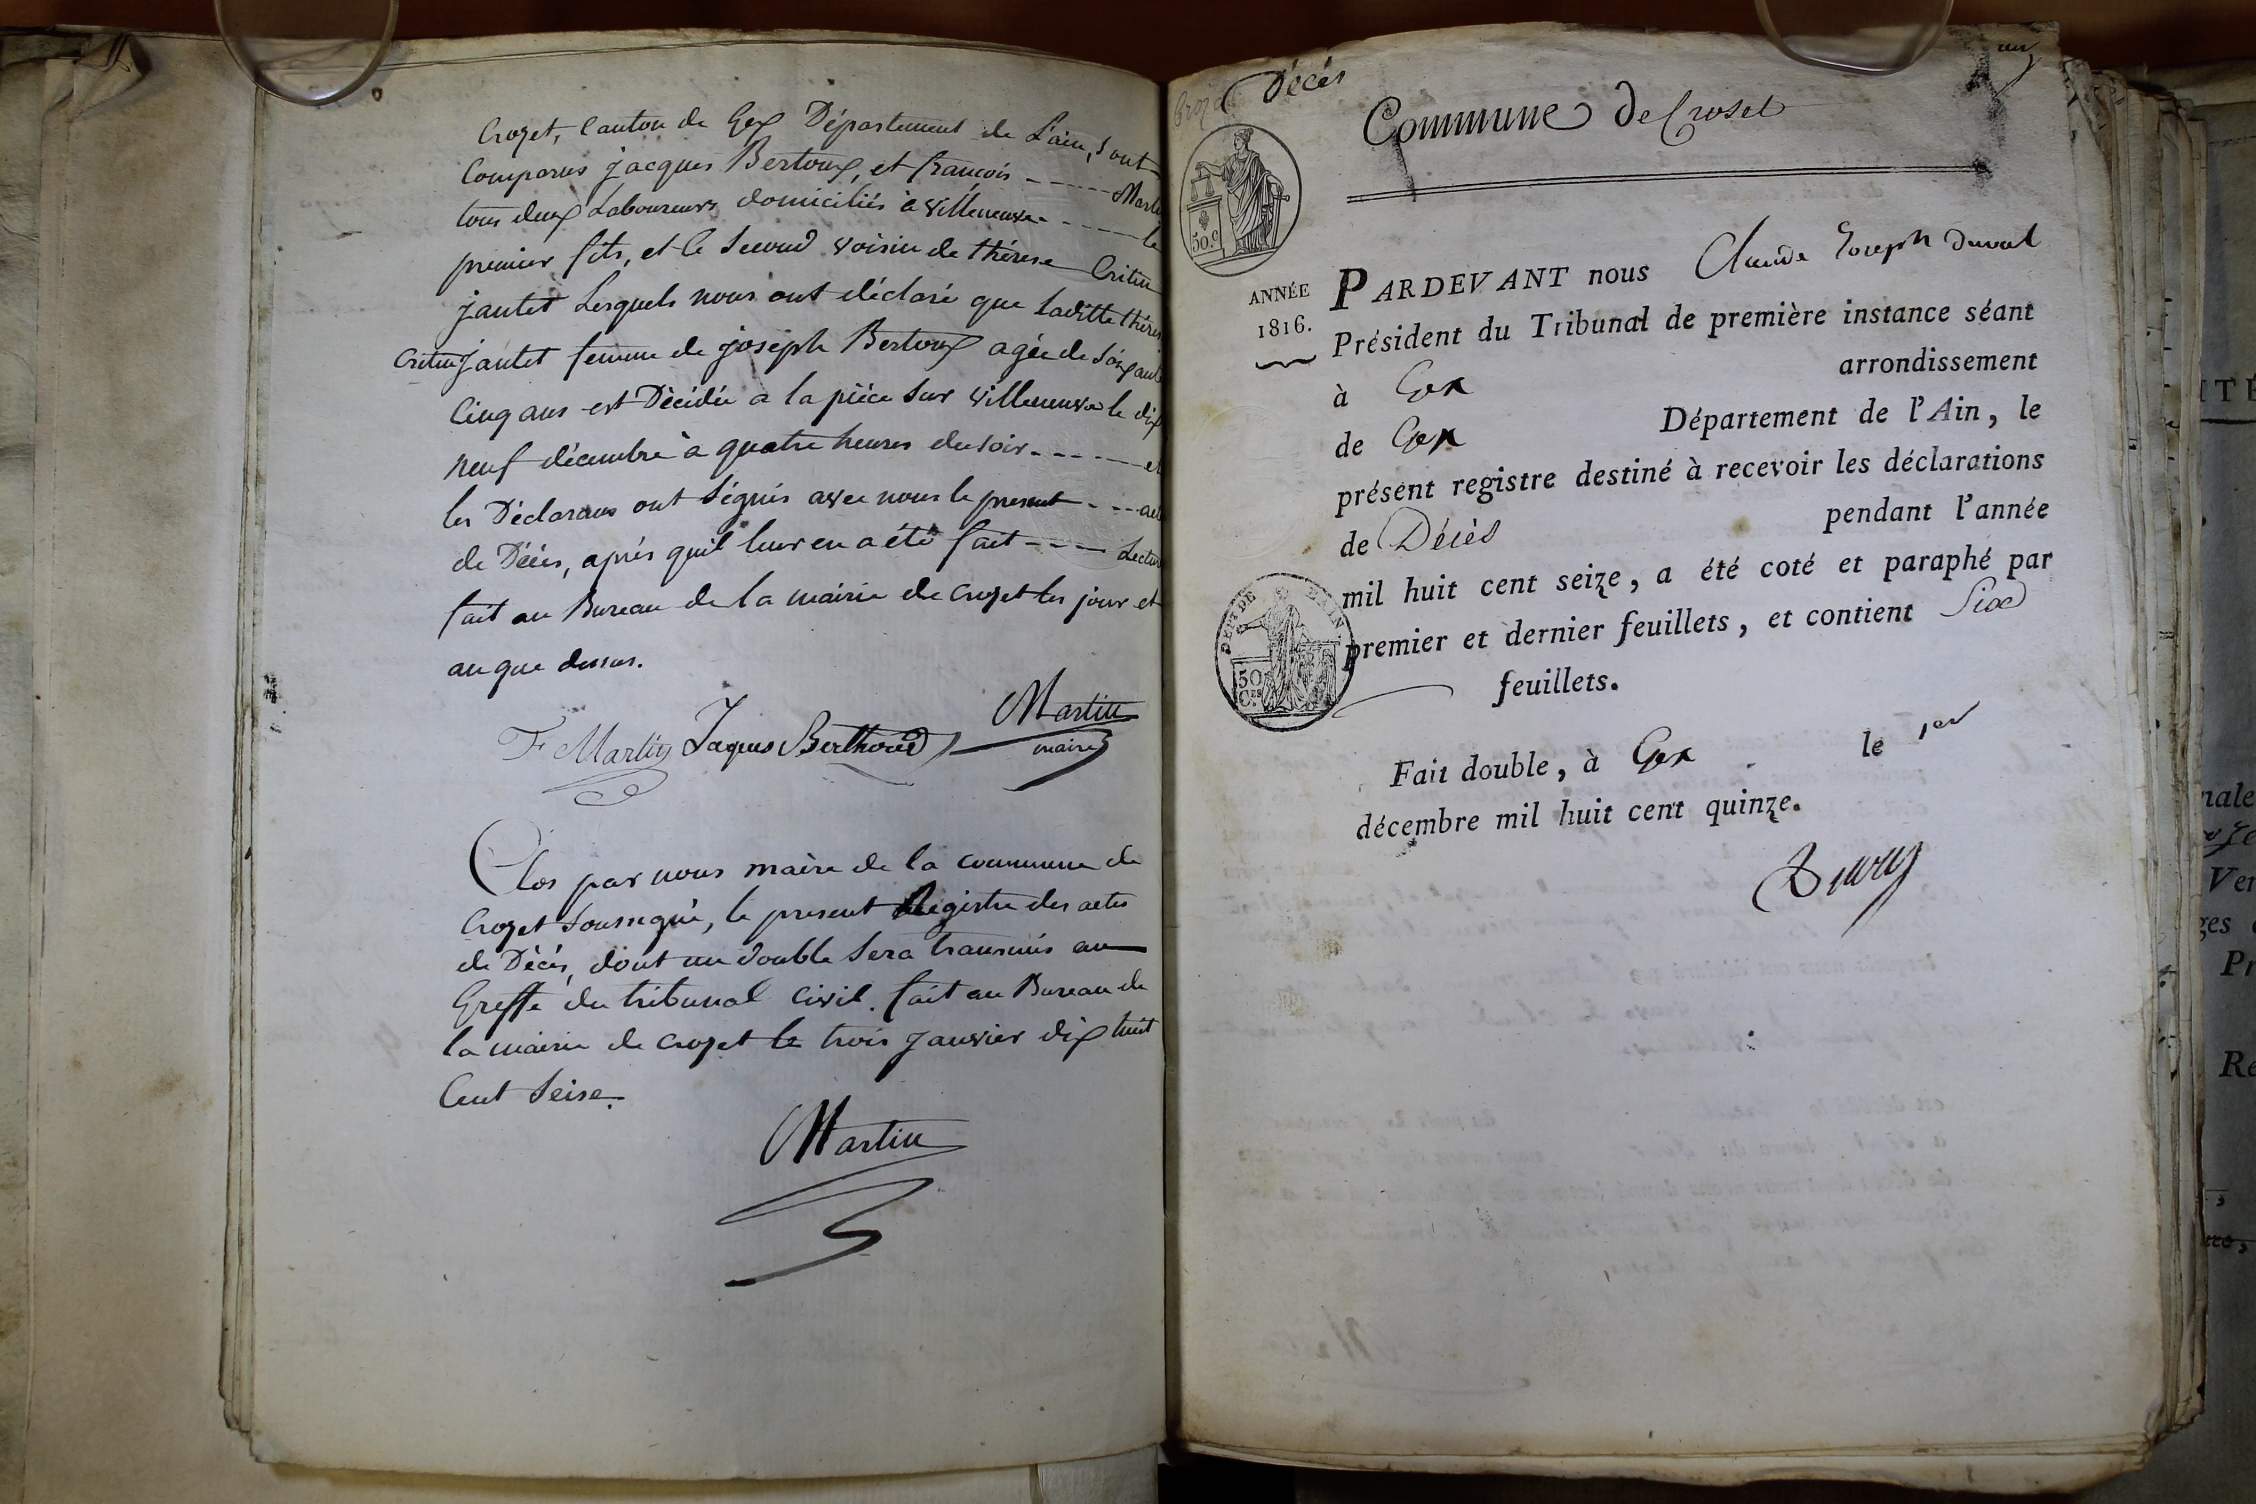 Crozet, Canton de Gex Département de L'ain, Sont
Comparus jacques Bertoux, et francois ----- Martin
tous deux Laboureurs domiciliés à villeneuve ----- le
premier fils, et le Second voisin de thérese Critin
jantet Lesquels nous ont déclaré que Laditte thérese
Critin jantet femme de joseph Bertoux agée de Soixante
Cinq ans est Décédée a la pièce Sur villeneuve le dix
neuf décembre à quatre heures du soir ----- et
les Déclarans ont Signés avec nous le present - - - acte
de Décès, après quil leur en a été fait ---- Lecture
fait au Bureau de la mairie de Crozet les jour et
an que dessus.
F Martin Jaques Berthoud Martin
maire
Clos par nous maire de la commune de
Crozet Soussigné, le present Registre des actes
de Décès, dont un double Sera transmis au
Greffe du tribunal Civil. fait au Bureau de
la mairie de Crozet le trois Janvier dix huit
Cent Seise.
Martin
Décés
un
Commune de Croset
50.C
ANNÉE
1816.
PARDEVANT nous Claude Joseph Duval
Président du Tribunal de première instance séant
à Gex arrondissement
de Gex Département de l'Ain, le
présent registre destiné à recevoir les déclarations
de Décès pendant l'année
mil huit cent seize, a été coté et paraphé par
premier et dernier feuillets, et contient Six
feuillets.
DEPT DE L'AIN
50
CES
Fait double, à Gex le 1er
décembre mil huit cent quinze.